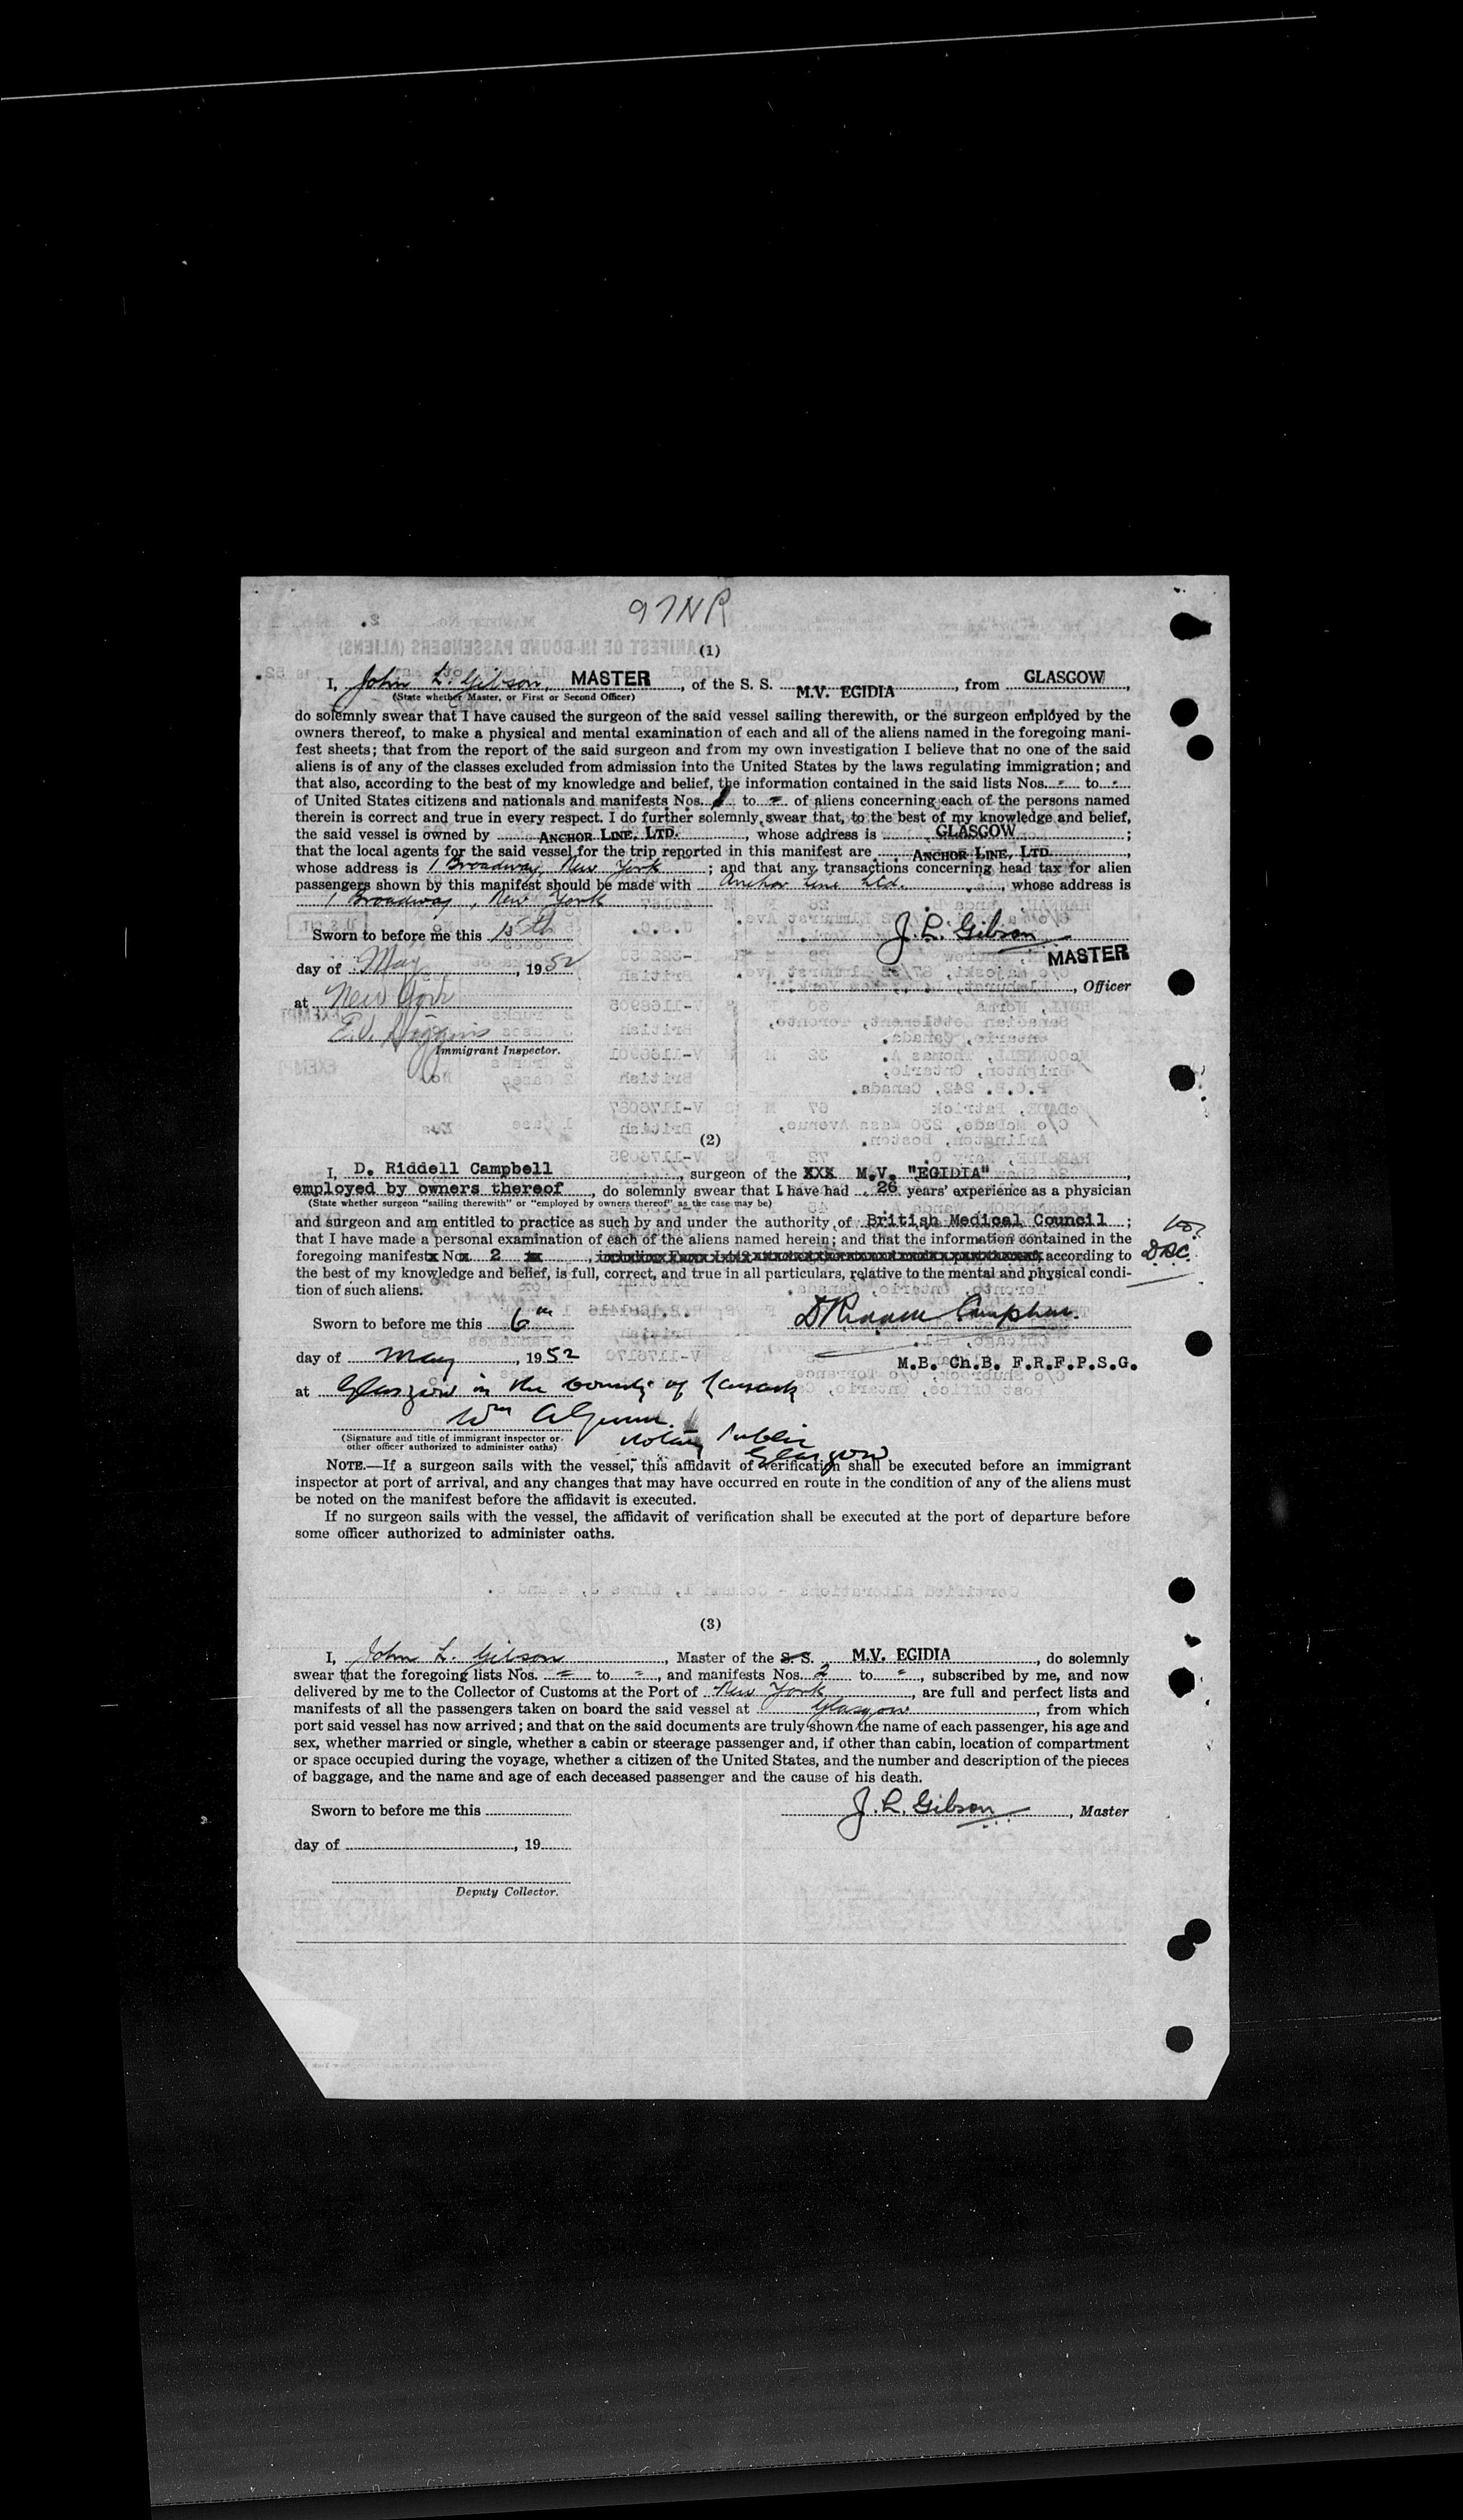 97NR
(1)
I, John L. Gibson, MASTER, of the S. S. M.V. EGIDIA, from GLASGOW,
(State whether Master, or First or Second Officer)
do solemnly swear that I have caused the surgeon of the said vessel sailing therewith, or the surgeon employed by the
owners thereof, to make a physical and mental examination of each and all of the aliens named in the foregoing mani-
fest sheets; that from the report of the said surgeon and from my own investigation I believe that no one of the said
aliens is of any of the classes excluded from admission into the United States by the laws regulating immigration; and
that also, according to the best of my knowledge and belief, the information contained in the said lists Nos. - to -
of United States citizens and nationals and manifests Nos. to = of aliens concerning each of the persons named
therein is correct and true in every respect. I do further solemnly swear that, to the best of my knowledge and belief,
the said vessel is owned by ANCHOR LINE, LTD., whose address is GLASGOW;
that the local agents for the said vessel for the trip reported in this manifest are ANCHOR LINE, LTD.,
whose address is 1 Broadway, New York; and that any transactions concerning head tax for alien
passengers shown by this manifest should be made with Anchor Line Ltd., whose address is
1 Broadway, New York
Sworn to before me this 15th
J. L. Gibson
MASTER
day of May, 1952
, Officer
at New York
E.V. Higgins
Immigrant Inspector.
(2)
I, D. Riddell Campbell, surgeon of the XXX M.V. "EGIDIA",
employed by owners thereof, do solemnly swear that I have had 26 years' experience as a physician
(State whether surgeon "sailing therewith" or "employed by owners thereof" as the case may be)
and surgeon and am entitled to practice as such by and under the authority of British Medical Council;
that I have made a personal examination of each of the aliens named herein; and that the information contained in the
foregoing manifestx Nox 2 xx, according to
D.R.C.
the best of my knowledge and belief, is full, correct, and true in all particulars, relative to the mental and physical condi-
tion of such aliens.
Sworn to before me this 6th
D Riddell Campbell.
day of May, 1952
M.B. Ch.B. F.R.F.P.S.G.
at Glasgow in the County of Lanark
Wm A Gunn.
Notary Public
Glasgow
(Signature and title of immigrant inspector or
other officer authorized to administer oaths)
NOTE.—If a surgeon sails with the vessel, this affidavit of verification shall be executed before an immigrant
inspector at port of arrival, and any changes that may have occurred en route in the condition of any of the aliens must
be noted on the manifest before the affidavit is executed.
If no surgeon sails with the vessel, the affidavit of verification shall be executed at the port of departure before
some officer authorized to administer oaths.
(3)
I, John L. Gibson, Master of the S.S. M.V. EGIDIA, do solemnly
swear that the foregoing lists Nos. = to =, and manifests Nos. 2 to =, subscribed by me, and now
delivered by me to the Collector of Customs at the Port of New York, are full and perfect lists and
manifests of all the passengers taken on board the said vessel at Glasgow, from which
port said vessel has now arrived; and that on the said documents are truly shown the name of each passenger, his age and
sex, whether married or single, whether a cabin or steerage passenger and, if other than cabin, location of compartment
or space occupied during the voyage, whether a citizen of the United States, and the number and description of the pieces
of baggage, and the name and age of each deceased passenger and the cause of his death.
Sworn to before me this
J. L. Gibson, Master
day of , 19
Deputy Collector.